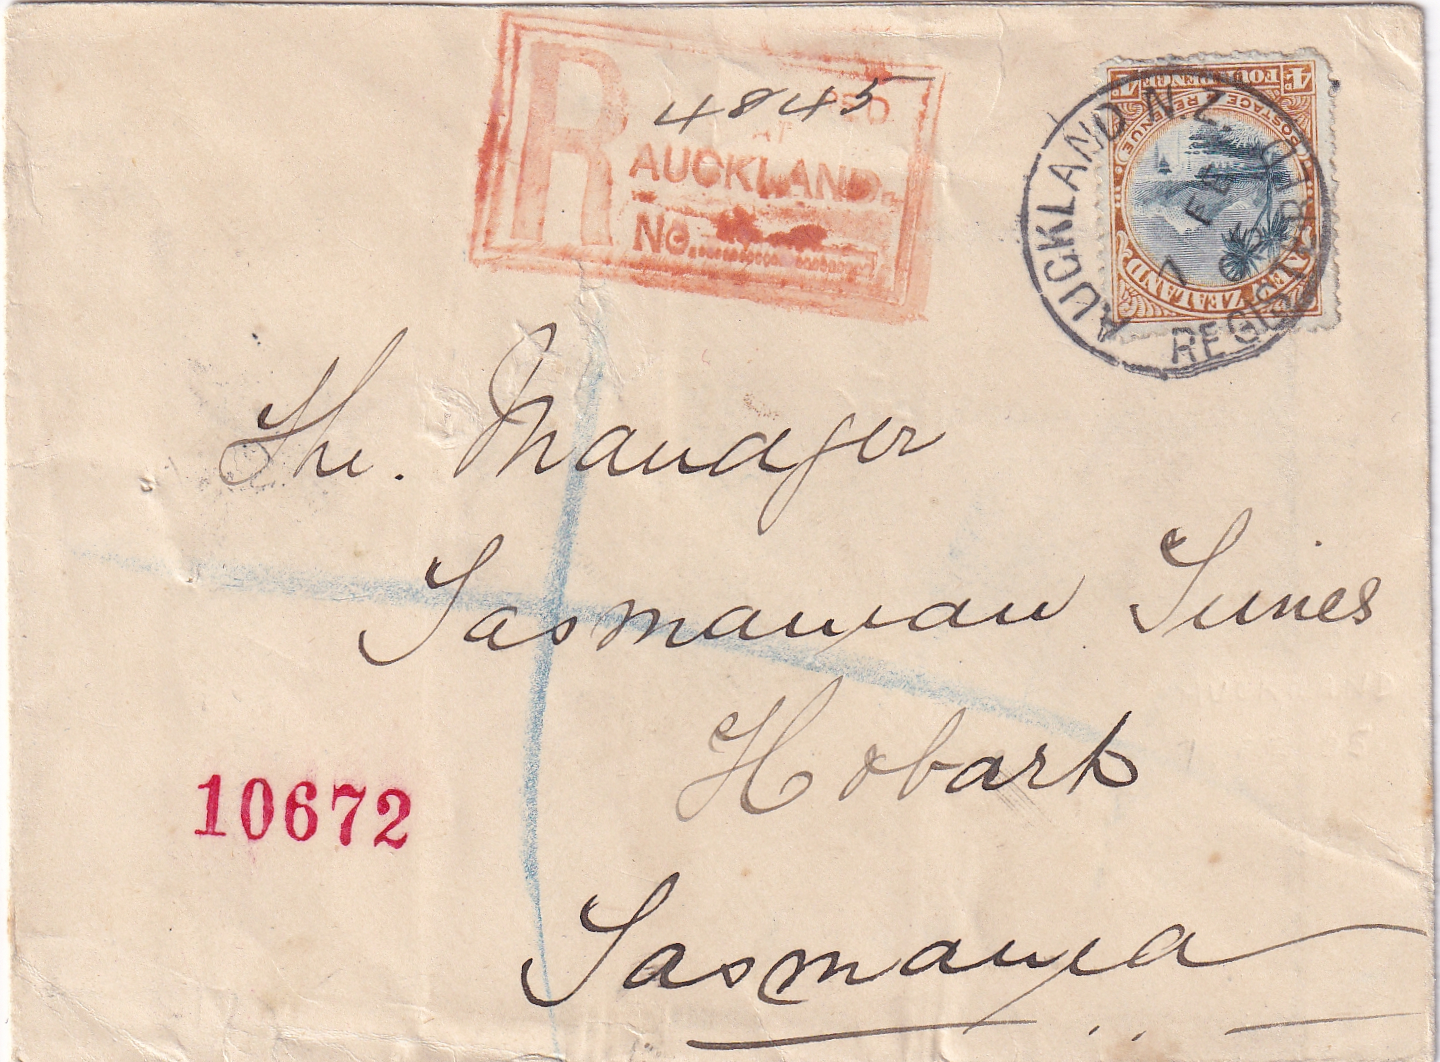 R
4845
AT
AUCKLAND.
No.
4d. FOURPENCE 4d.
POSTAGE REVENUE
NEW ZEALAND
AUCKLAND N.Z.
REGISTERED
7 FE 05
The. Manager
Tasmanian Times
Hobart
10672
Tasmania